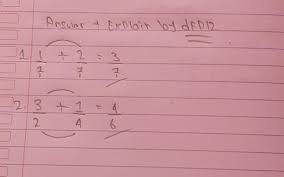 Answer & Explain by
1. 1/7 + 2/7 = 3/7
2. 3/2 + 1/4 = 4/6